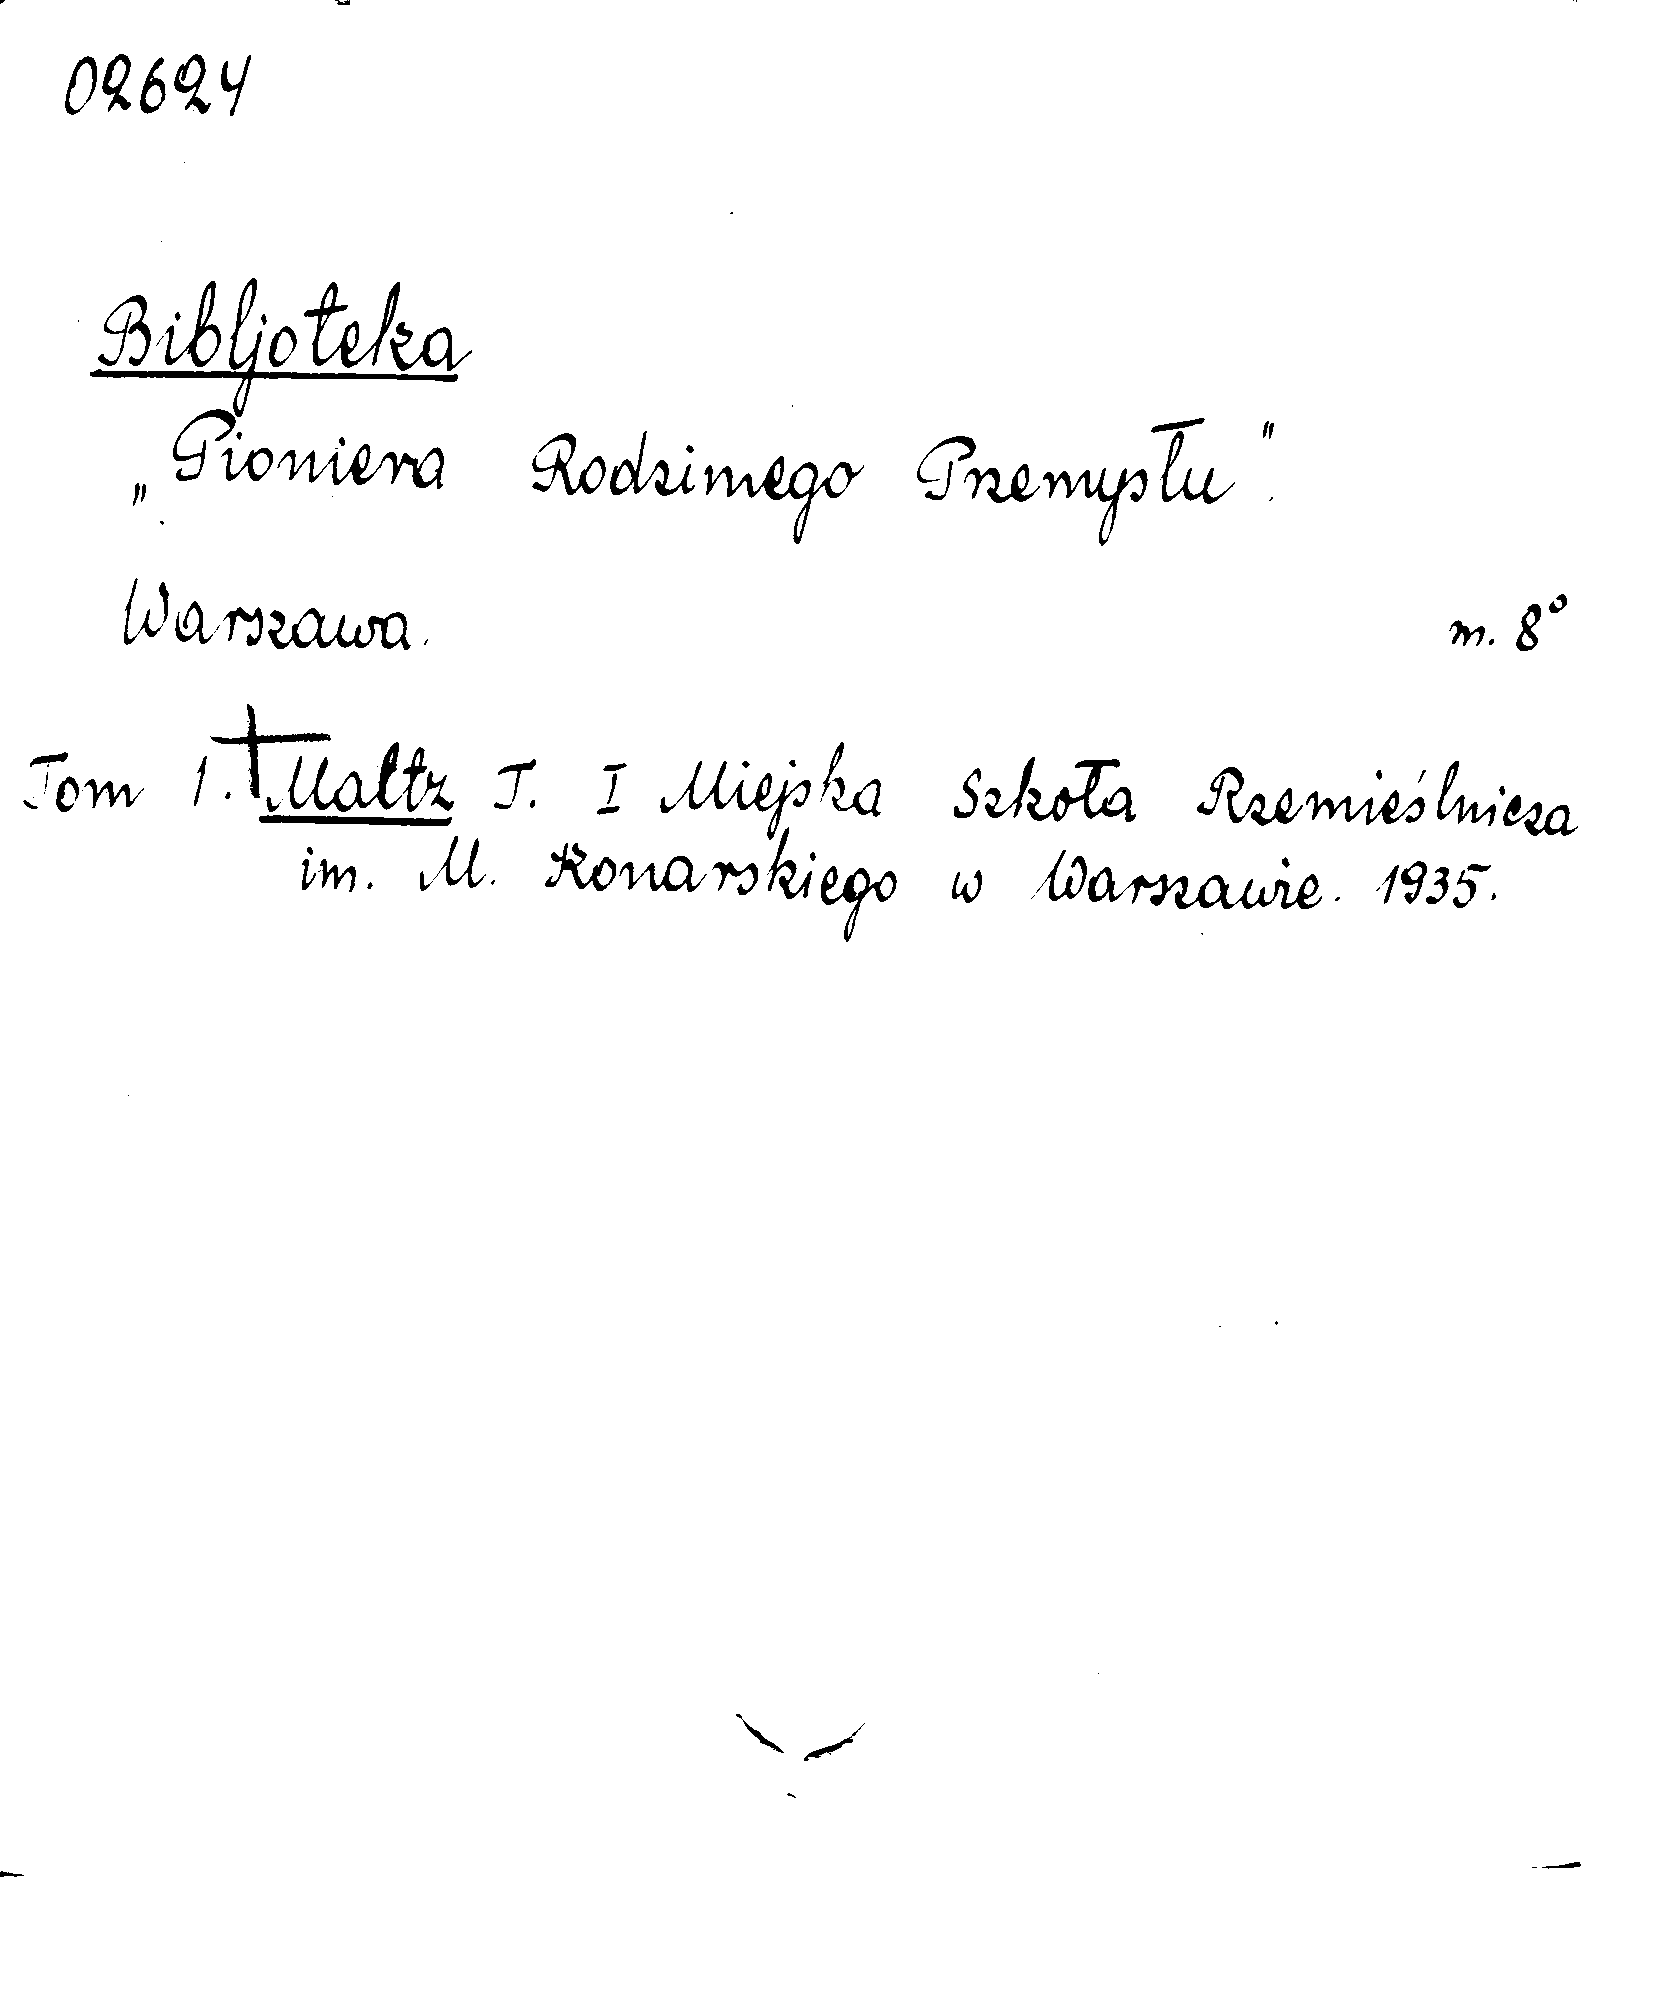 02624
Bibljoteka
„Pioniera Rodzimego Przemysłu".
Warszawa. m. 8°
Tom 1. Maltz T. I Miejska Szkoła Rzemieślnicza
im. M. Konarskiego w Warszawie. 1935.